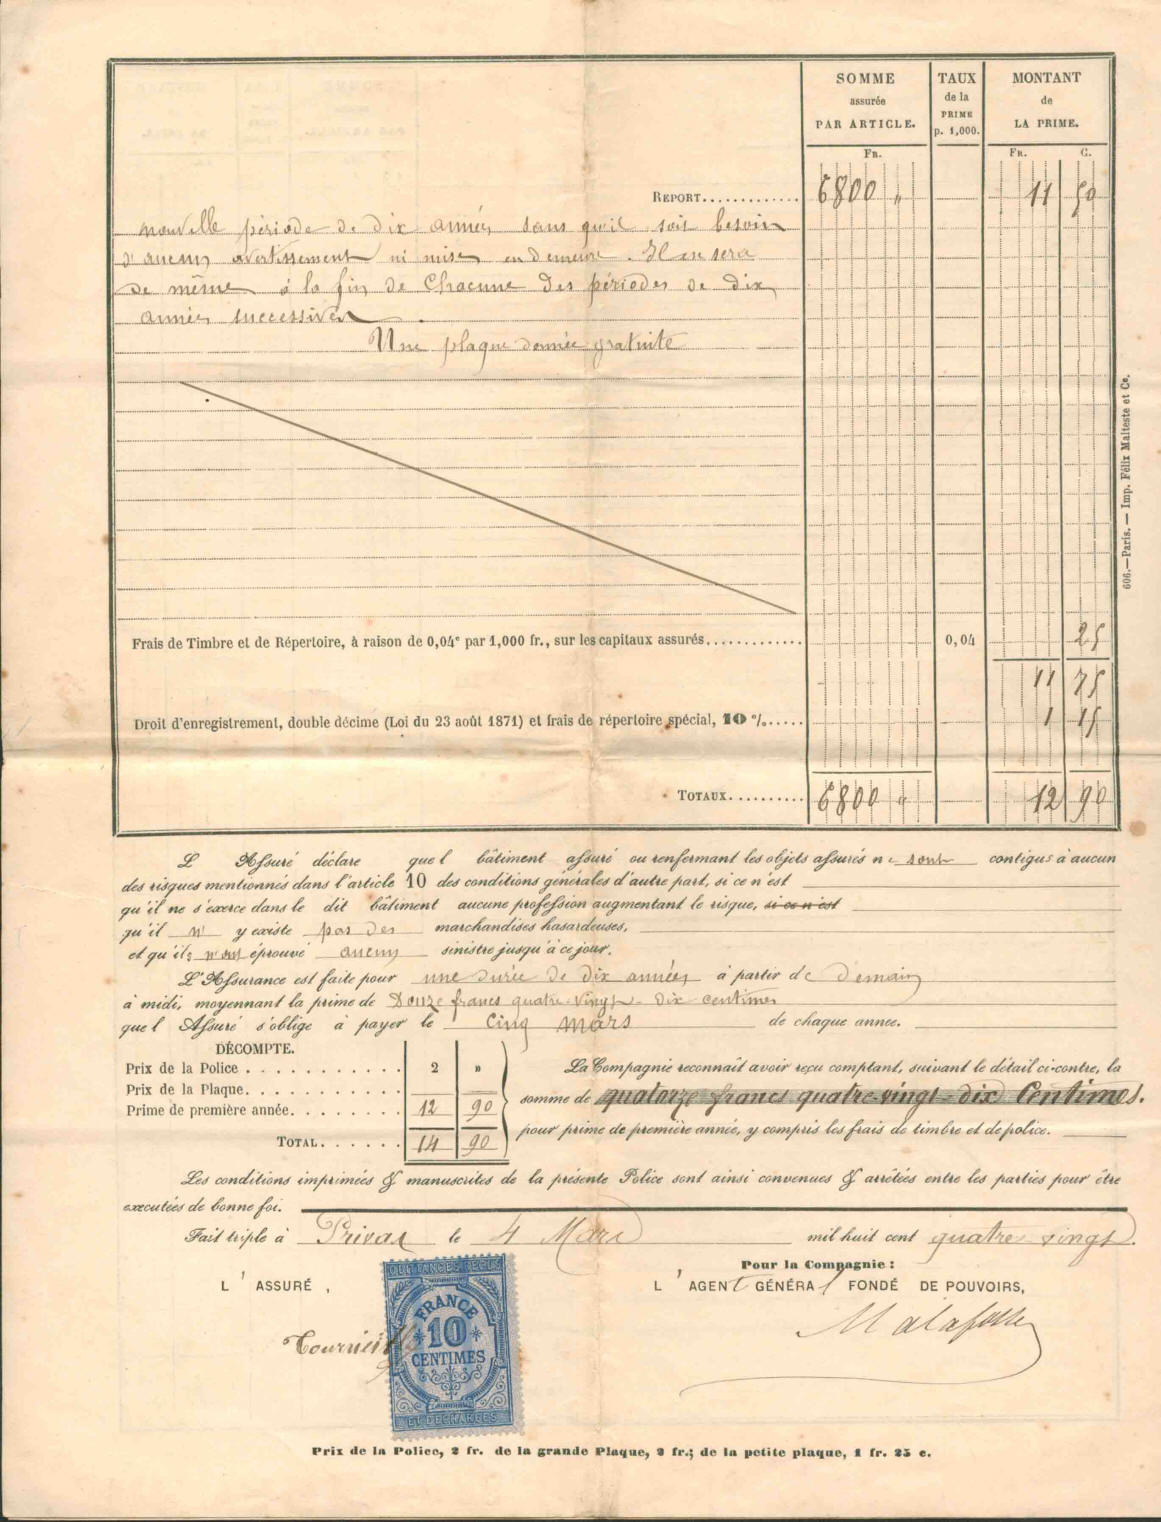 SOMME
assurée
PAR ARTICLE.
TAUX
de la
PRIME
p. 1,000.
MONTANT
de
LA PRIME.
FR.
FR. C.
REPORT............. 6800 " 11 50
nouvelle période de dix années sans qu'il soit besoin
d'aucun avertissement ni mise en demeure. Il en sera
de même à la fin de Chacune des périodes de dix
années successives.
Une plaque donnée gratuite
Frais de Timbre et de Répertoire, à raison de 0,04c par 1,000 fr., sur les capitaux assurés............. 0,04 25
11 75
Droit d'enregistrement, double décime (Loi du 23 août 1871) et frais de répertoire spécial, 10 %..... 1 15
TOTAUX.......... 6800 " 12 90
606.—Paris. — Imp. Félix Malteste et Ce.
L Assuré déclare que l bâtiment assuré ou renfermant les objets assurés ne sont contigus à aucun
des risques mentionnés dans l'article 10 des conditions générales d'autre part, si ce n'est
qu'il ne s'exerce dans le dit bâtiment aucune profession augmentant le risque, si ce n'est
qu'il n' y existe pas des marchandises hasardeuses,
et qu'ils n'ont éprouvé aucun sinistre jusqu'à ce jour.
L'Assurance est faite pour une durée de dix années à partir de demain
à midi, moyennant la prime de Douze francs quatre-vingt-dix centimes
que l Assuré s'oblige à payer le Cinq mars de chaque année.
DÉCOMPTE.
Prix de la Police . . . . . . . . . . . 2 "
Prix de la Plaque. . . . . . . . . . .
Prime de première année. . . . . . . . 12 90
TOTAL. . . . . . 14 90
La Compagnie reconnaît avoir reçu comptant, suivant le détail ci-contre, la
somme de quatorze francs quatre-vingt-dix Centimes.
pour prime de première année, y compris les frais de timbre et de police.
Les conditions imprimées & manuscrites de la présente Police sont ainsi convenues & arrêtées entre les parties pour être
exécutées de bonne foi.
Fait triple à Privas le 4 Mars mil huit cent quatre vingt.
Pour la Compagnie :
L' ASSURÉ,
L' AGENT GÉNÉRAL FONDÉ DE POUVOIRS,
QUITTANCES REÇUS
FRANCE
10
CENTIMES
ET DÉCHARGES
Malafosse
Prix de la Police, 2 fr. de la grande Plaque, 2 fr.; de la petite plaque, 1 fr. 25 c.